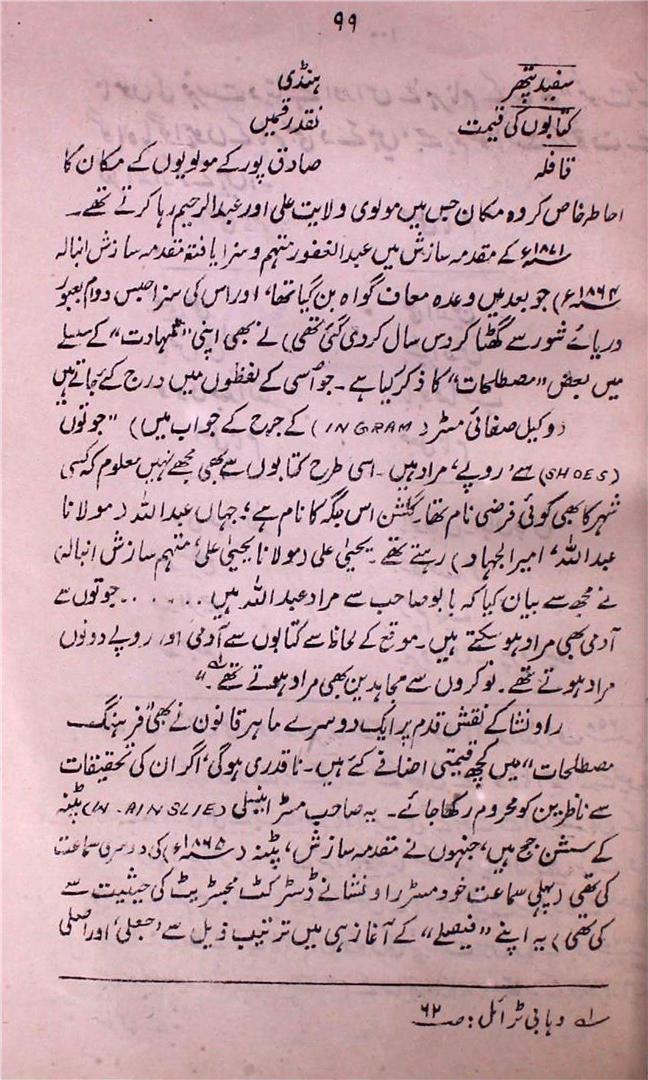 ۹۹
سفید پتھر ہنڈی
کتابوں کی قیمت نقد رقمیں
قافلہ صادق پور کے مولویوں کے مکان کا
احاطہ خاص کر وہ مکان جس میں مولوی ولایت علی اور عبدالرحیم رہا کرتے تھے۔
۱۸۷۱ء کے مقدمہ سازش میں عبدالغفور متہم و سزا یافتہ مقدمہ سازش انبالہ
۱۸۶۴ء) جو بعد میں وعدہ معاف گواہ بن گیا تھا، اور اس کی سزا حبس دوام بعبور
دریائے شور سے گھٹا کر دس سال کردی گئی تھی) نے بھی اپنی "شہادت" کے سلسلے
میں بعض "مصطلحات" کا ذکر کیا ہے۔ جو اُسی کے لفظوں میں درج کئے جاتے ہیں
(وکیل صفائی مسٹر (INGRAM) کے جرح کے جواب میں) "جوتوں
(SHOES) سے 'روپے' مراد ہیں۔ اسی طرح کتابوں سے بھی مجھے نہیں معلوم کہ کسی
شہر کا بھی کوئی فرضی نام تھا۔ گلشن اس جگہ کا نام ہے، جہاں عبداللہ (مولانا
عبداللہ، امیر الجہاد) رہتے تھے۔ یحییٰ علی (مولانا یحییٰ علی، متہم سازش انبالہ)
نے مجھ سے بیان کیا کہ بابو صاحب سے مراد عبداللہ ہیں ...... جوتوں سے
آدمی بھی مراد ہوسکتے ہیں۔ موقع کے لحاظ سے کتابوں سے آدمی اور روپے دونوں
مراد ہوتے تھے۔ نوکروں سے مجاہدین بھی مراد ہوتے تھے۔"۱؎
راونشا کے نقش قدم پر ایک دوسرے ماہر قانون نے بھی "فرہنگ
مصطلحات" میں کچھ قیمتی اضافے کئے ہیں۔ ناقدری ہوگی، اگر ان کی تحقیقات
سے ناظرین کو محروم رکھا جائے۔ یہ صاحب مسٹر اینسلی (W. AINSLIE) پٹنہ
کے سشن جج ہیں، جنہوں نے مقدمہ سازش، پٹنہ (۱۸۶۵ء) کی دوسری سماعت
کی تھی (پہلی سماعت خود مسٹر راونشا نے ڈسٹرکٹ مجسٹریٹ کی حیثیت سے
کی تھی) یہ اپنے "فیصلے" کے آغاز ہی میں ترتیب ذیل سے 'جعلی' اور اصلی
۱؎ وہابی ٹرائل: ص ۶۲